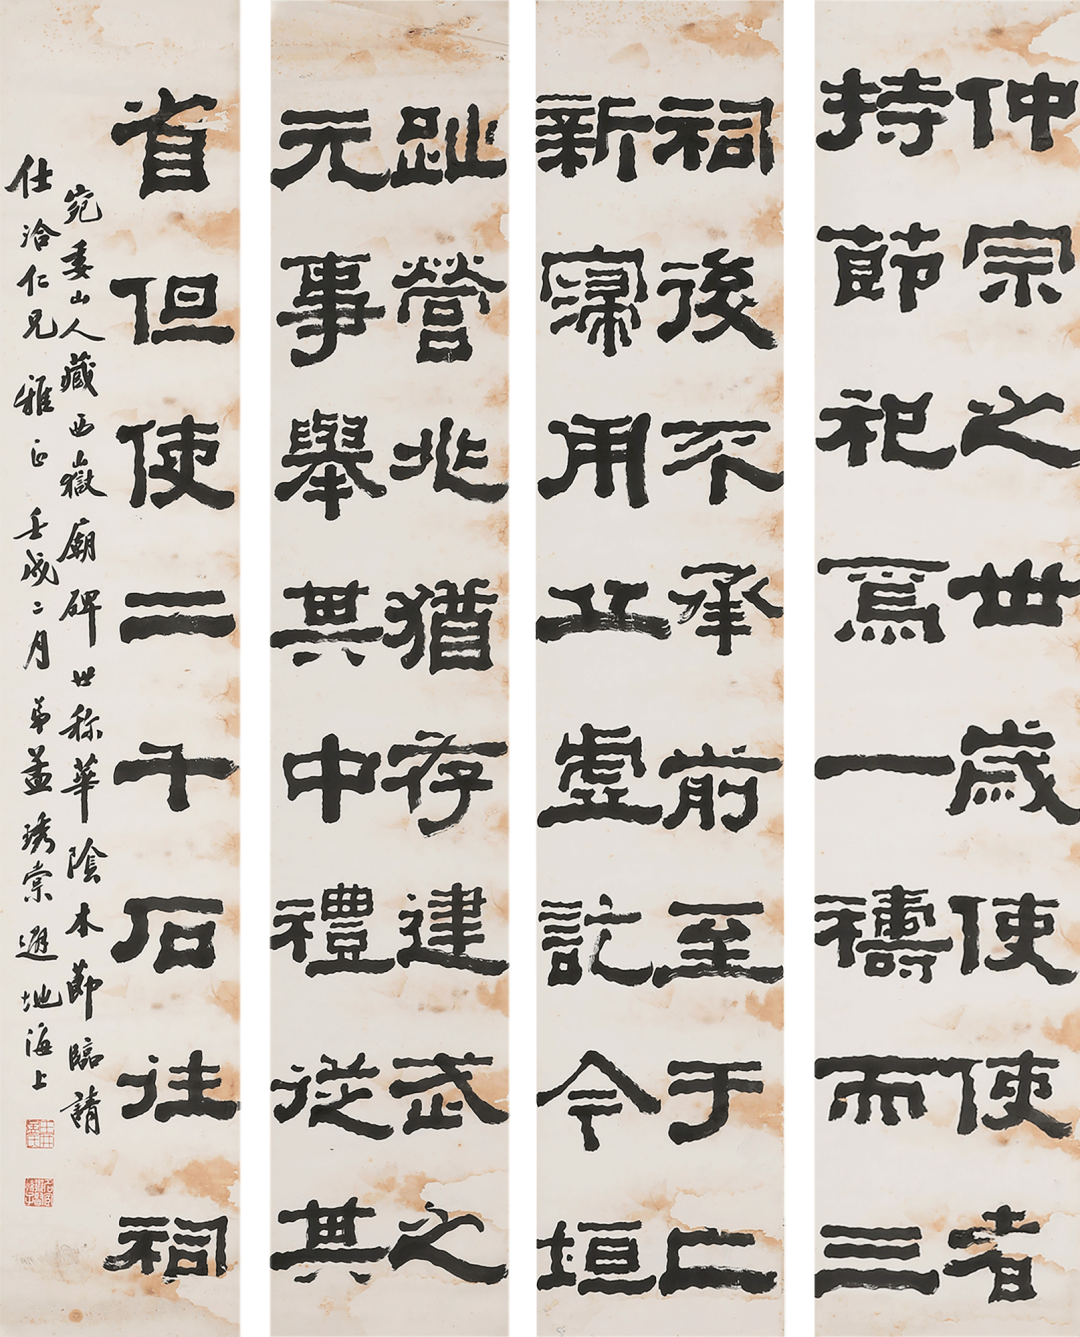 仲宗之世歲使使者
持節祀焉一禱而三
祠後不承前至于亡
新寖用丘虛訖今垣
趾營兆猶存建武之
元事舉其中禮從其
省但使二千石往祠
宛委山人藏西嶽廟碑世称華陰本節臨請
仕洽仁兄雅正壬戌二月弟琇棠遯地海上